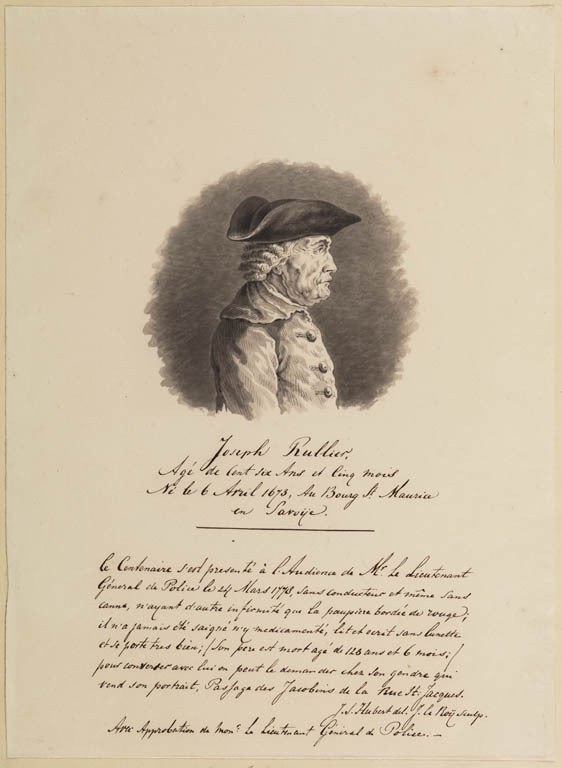 Joseph Rullier,
Agé de Cent six Ans et Cinq mois
Né le 6 Avril 1673, Au Bourg St. Maurice
en Savoÿe.
Ce Centenaire s'est presenté à l'Audience de Mr. Le Lieutenant
Général de Police le 24 Mars 1778, sans conducteur et même sans
canne, n'ayant d'autre infirmité que la paupiere bordée de rouge;
il n'a jamais été saigné n'y medicamenté, lit et ecrit sans lunette
et se porte très bien; / Son père est mort agé de 123 ans et 6 mois; /
pour converser avec lui on peut le demander chez son gendre qui
vend son portrait, Passage des Jacobins de la Rue St. Jacques.
J. S. Hubert del. J. le Roÿ Sculp.
Avec Approbation de Monr. le Lieutenant Général de Police.